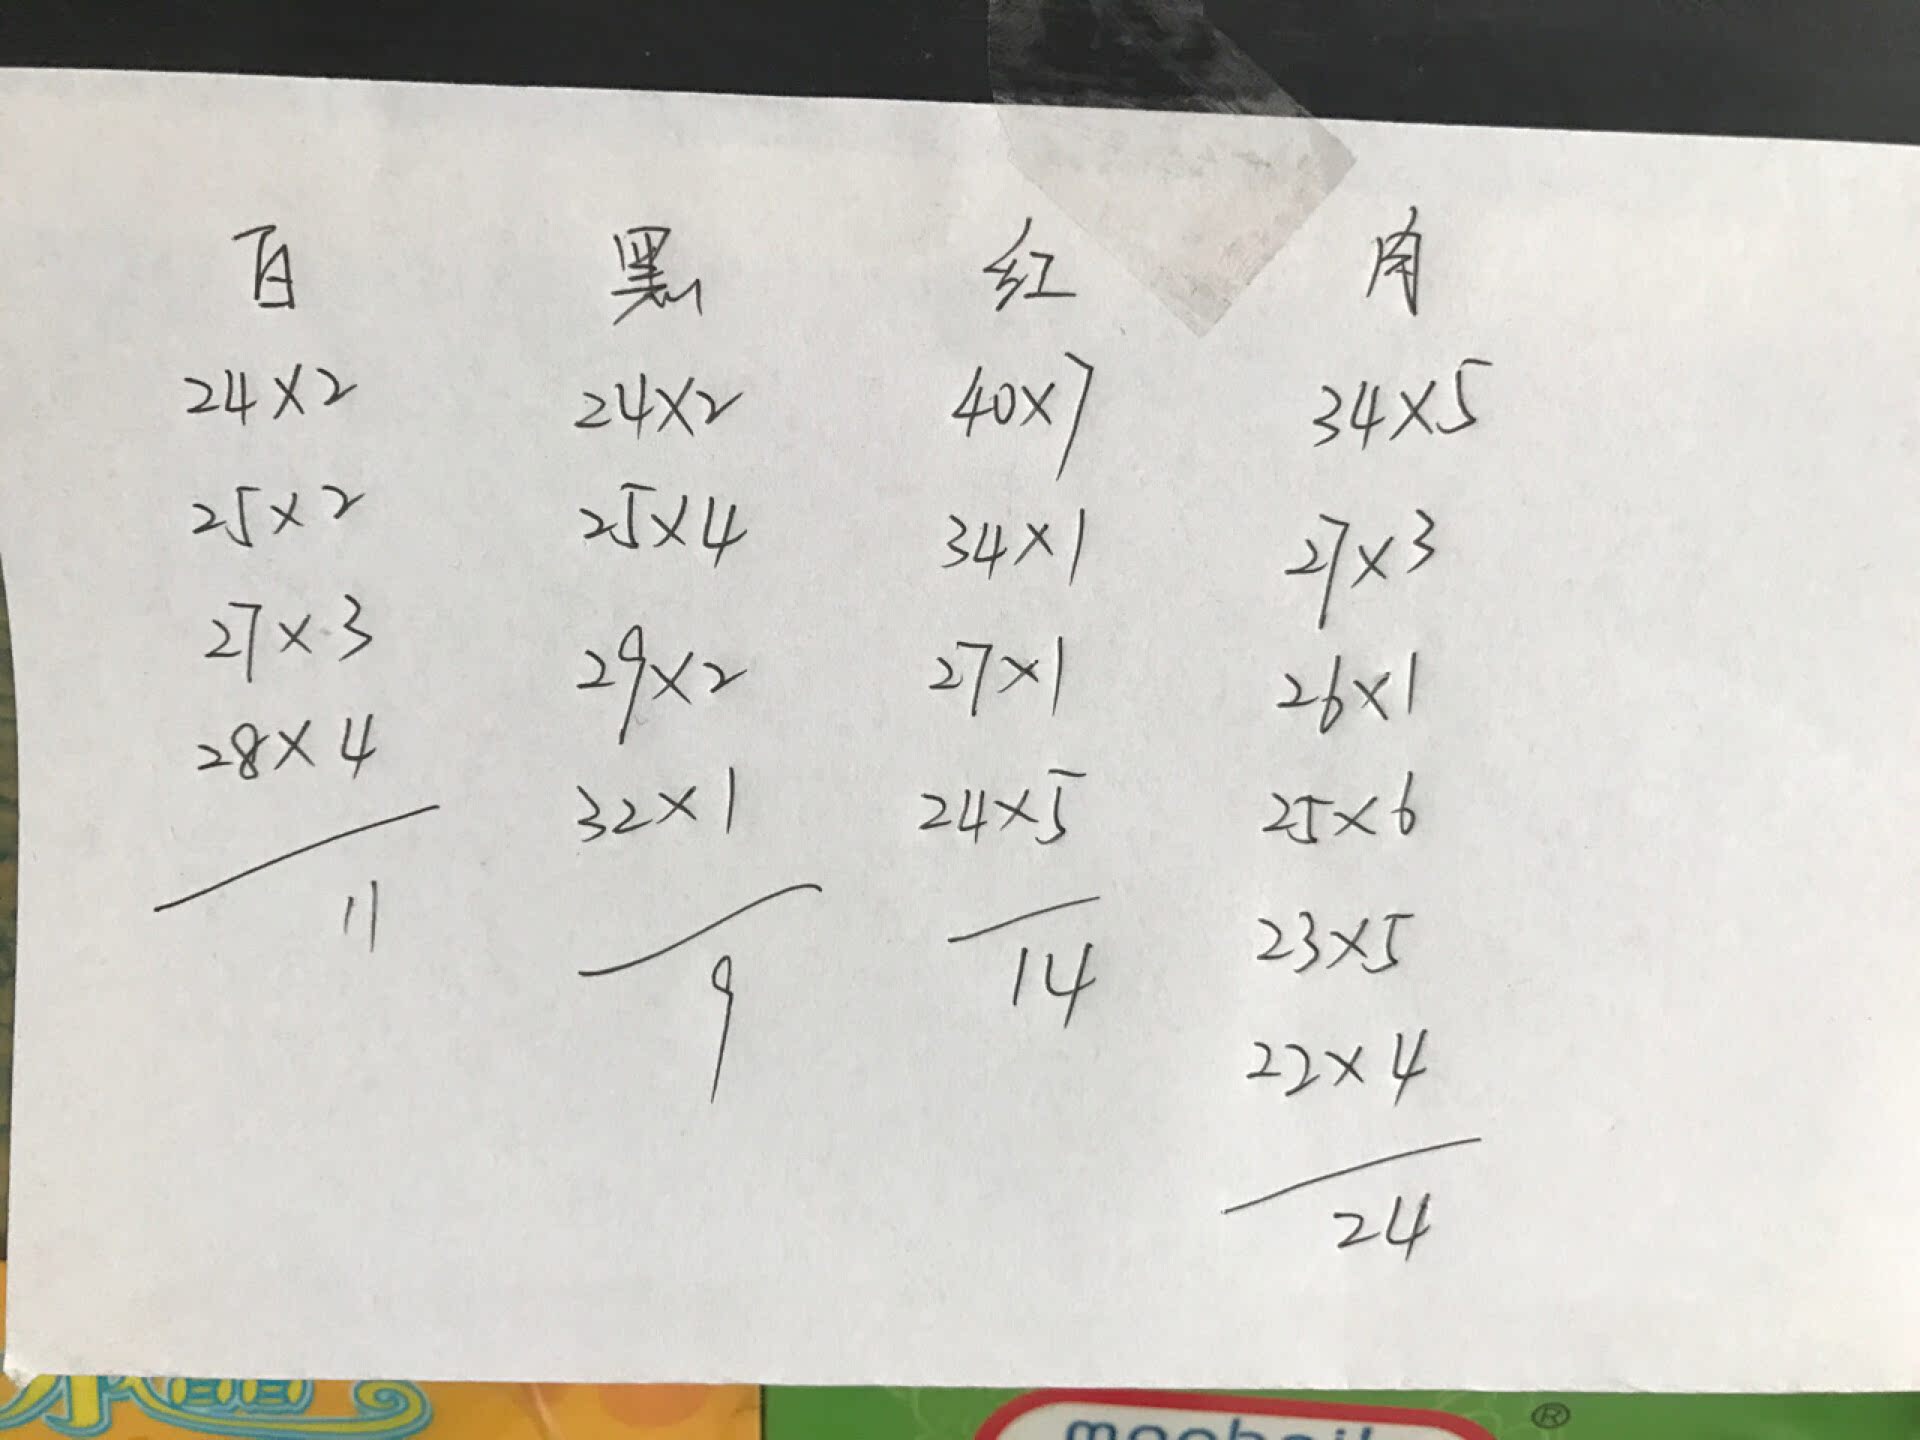 百 黑 红 肉
24×2 24×2 40×7 34×5
25×2 25×4 34×1 27×3
27×3 29×2 27×1 26×1
28×4 32×1 24×5 25×6
11 9 14 23×5
22×4
24
®